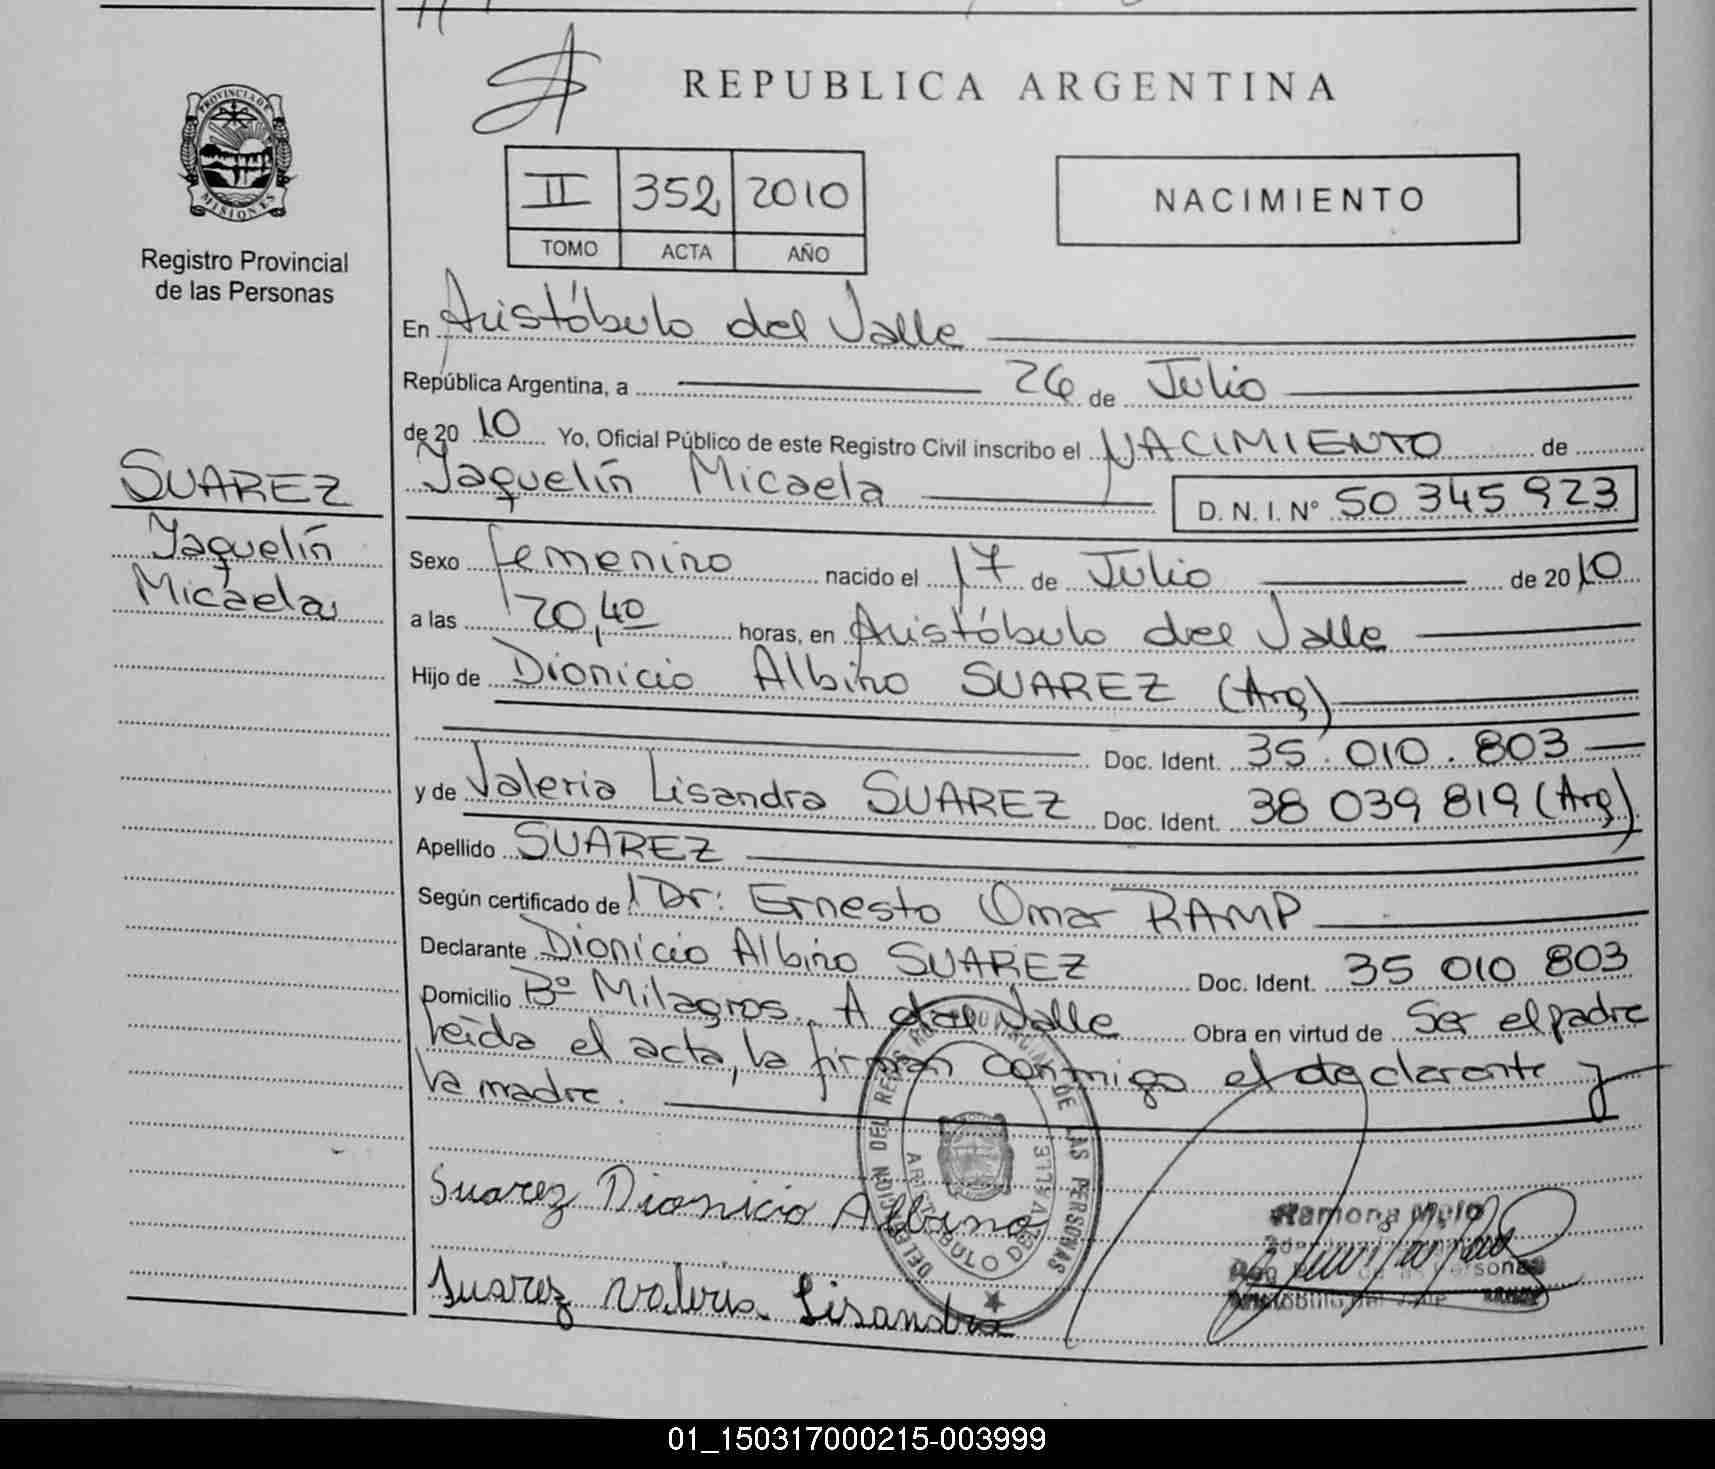 REPUBLICA ARGENTINA
PROVINCIA DE
MISIONES
Registro Provincial
de las Personas
II 352 2010
TOMO ACTA AÑO
NACIMIENTO
En Aristóbulo del Valle
República Argentina, a 26 de Julio
de 20 10 Yo, Oficial Público de este Registro Civil inscribo el NACIMIENTO de
Yaquelín Micaela D. N. I. N° 50 345 923
SUAREZ
Yaquelín
Micaela
Sexo femenino nacido el 17 de Julio de 20 10
a las 20,40 horas, en Aristóbulo del Valle
Hijo de Dionicio Albino SUAREZ (Arg)
Doc. Ident. 35.010.803
y de Valeria Lisandra SUAREZ Doc. Ident. 38 039 819 (Arg)
Apellido SUAREZ
Según certificado de Dr: Ernesto Omar RAMP
Declarante Dionicio Albino SUAREZ Doc. Ident. 35 010 803
Domicilio Bº Milagros. A del Valle Obra en virtud de Ser el padre
leída el acta, la firman conmigo el declarante y
la madre.
Suarez Dionicio Albino
Suarez Valeria Lisandra
DELEGACION DEL REGISTRO PROVINCIAL DE LAS PERSONAS
ARISTOBULO DEL VALLE
Ramona
01_150317000215-003999